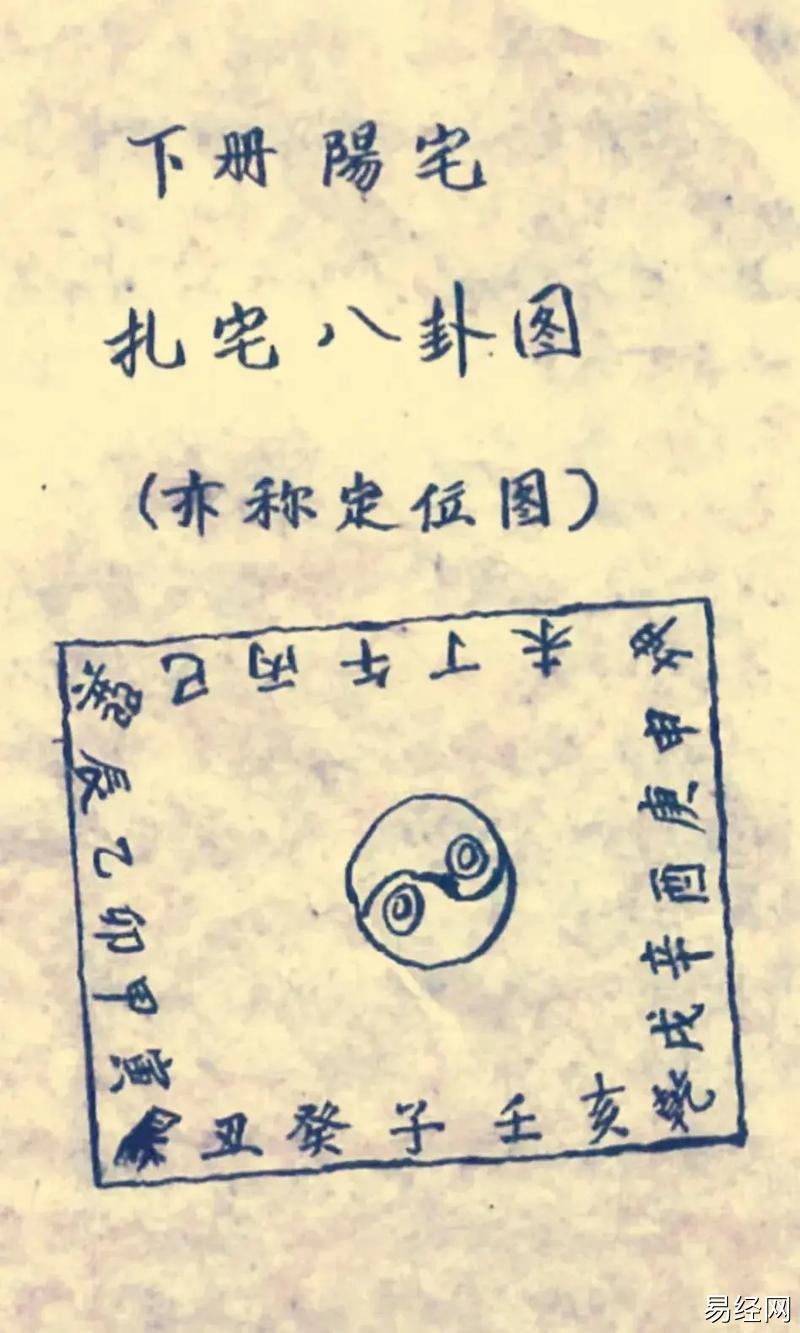 下册 陽宅
扎宅八卦图
(亦称定位图)
巽巳丙午丁未坤
辰乙卯甲寅
申庚酉辛戌乾
丑癸子壬亥
易经网